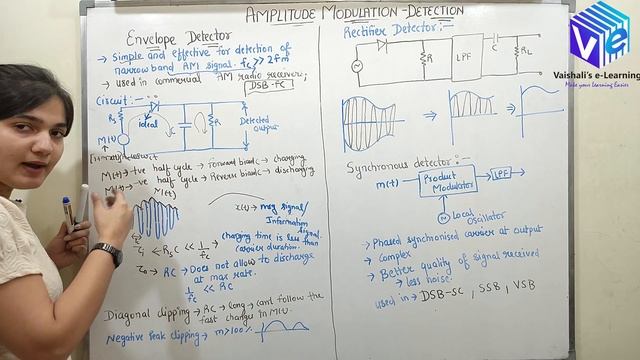 AMPLITUDE MODULATION - DETECTION
Envelope Detector
→ Simple and effective for detection of
narrow band AM signal. fc >> 2fm
→ used in commercial AM radio receiver,
DSB-FC
Circuit :-
Rs
Ideal
C
R
M(t)
Detected
output
M(t) → +ve half cycle → forward biased → charging
M(t) → -ve half cycle → Reverse biased → discharging
M(t)
x(t) → msg signal/
Information
signal
τi < RsC << 1/fc
→ charging time is less than
carrier duration.
RC → Does not allow to discharge
at max rate.
1/fc << RC
Diagonal clipping → RC → long → can't follow the
fast changes in M(t)
Negative Peak clipping → m>100%
Rectifier Detector:-
R
LPF
C
RL
⇒
⇒
Synchronous detector :-
m(t)
Product
Modulator
LPF
Local
Oscillator
→ Phased synchronised carrier at output
→ complex
→ Better quality of signal received
→ less noise.
used in → DSB-SC, SSB, VSB
Vaishali's e-Learning
Make your Learning Easier